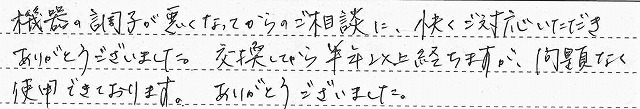 機器の調子が悪くなってからのご相談に、快くご対応いただき
ありがとうございました。交換してから半年以上経ちますが、問題なく
使用できております。ありがとうございました。